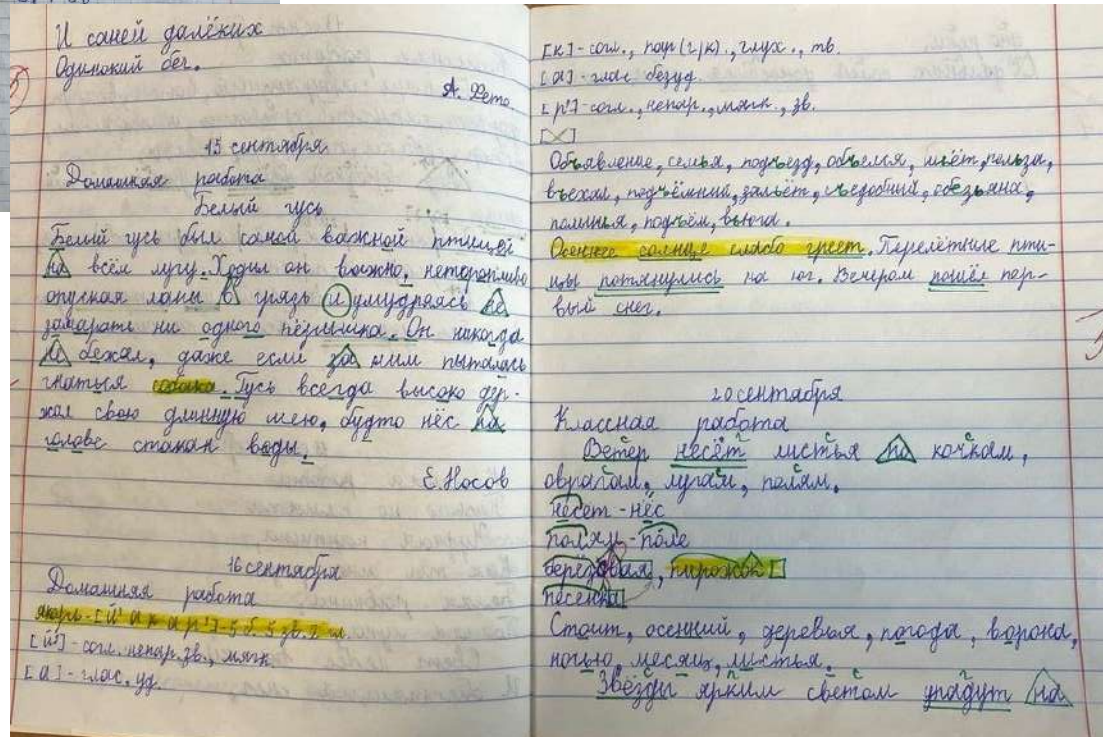 И саней далёких
Одинокий бег.
А. Фето
15 сентября
Домашняя работа
Белый гусь
Белый гусь был самой важной птицей
на всём лугу. Ходил он важно, неторопливо
опуская лапы в грязь и умудряясь не
замарать ни одного пёрышка. Он никогда
не бежал, даже если за ним пыталась
гнаться собака. Гусь всегда высоко дер-
жал свою длинную шею, будто нёс на
голове стакан воды.
Е. Носов
16 сентября
Домашняя работа
якорь - [й' а к а р'] - 5 б. 5 зв. 2 гл.
[й'] - согл. непар. зв., мягк
[а] - глас, уд.
[к] - согл., пар (г/к), глух., тв.
[а] - глас безуд.
[р'] - согл., непар., мягк., зв.
Объявление, семья, подъезд, объелся, шьёт, польза,
въехал, подъёмный, зальёт, съедобный, обезьяна,
полынья, подъём, вьюга.
Осеннее солнце слабо греет. Перелётные пти-
цы потянулись на юг. Вечером пошёл пер-
вый снег.
20 сентября
Классная работа
Ветер несёт листья по кочкам,
оврагам, лугам, полям.
несёт - нёс
полям - поле
берёзовая, пирожок
песенка
Стоит, осенний, деревья, погода, ворона,
ночью, месяц, листья.
Звёзды ярким светом упадут на